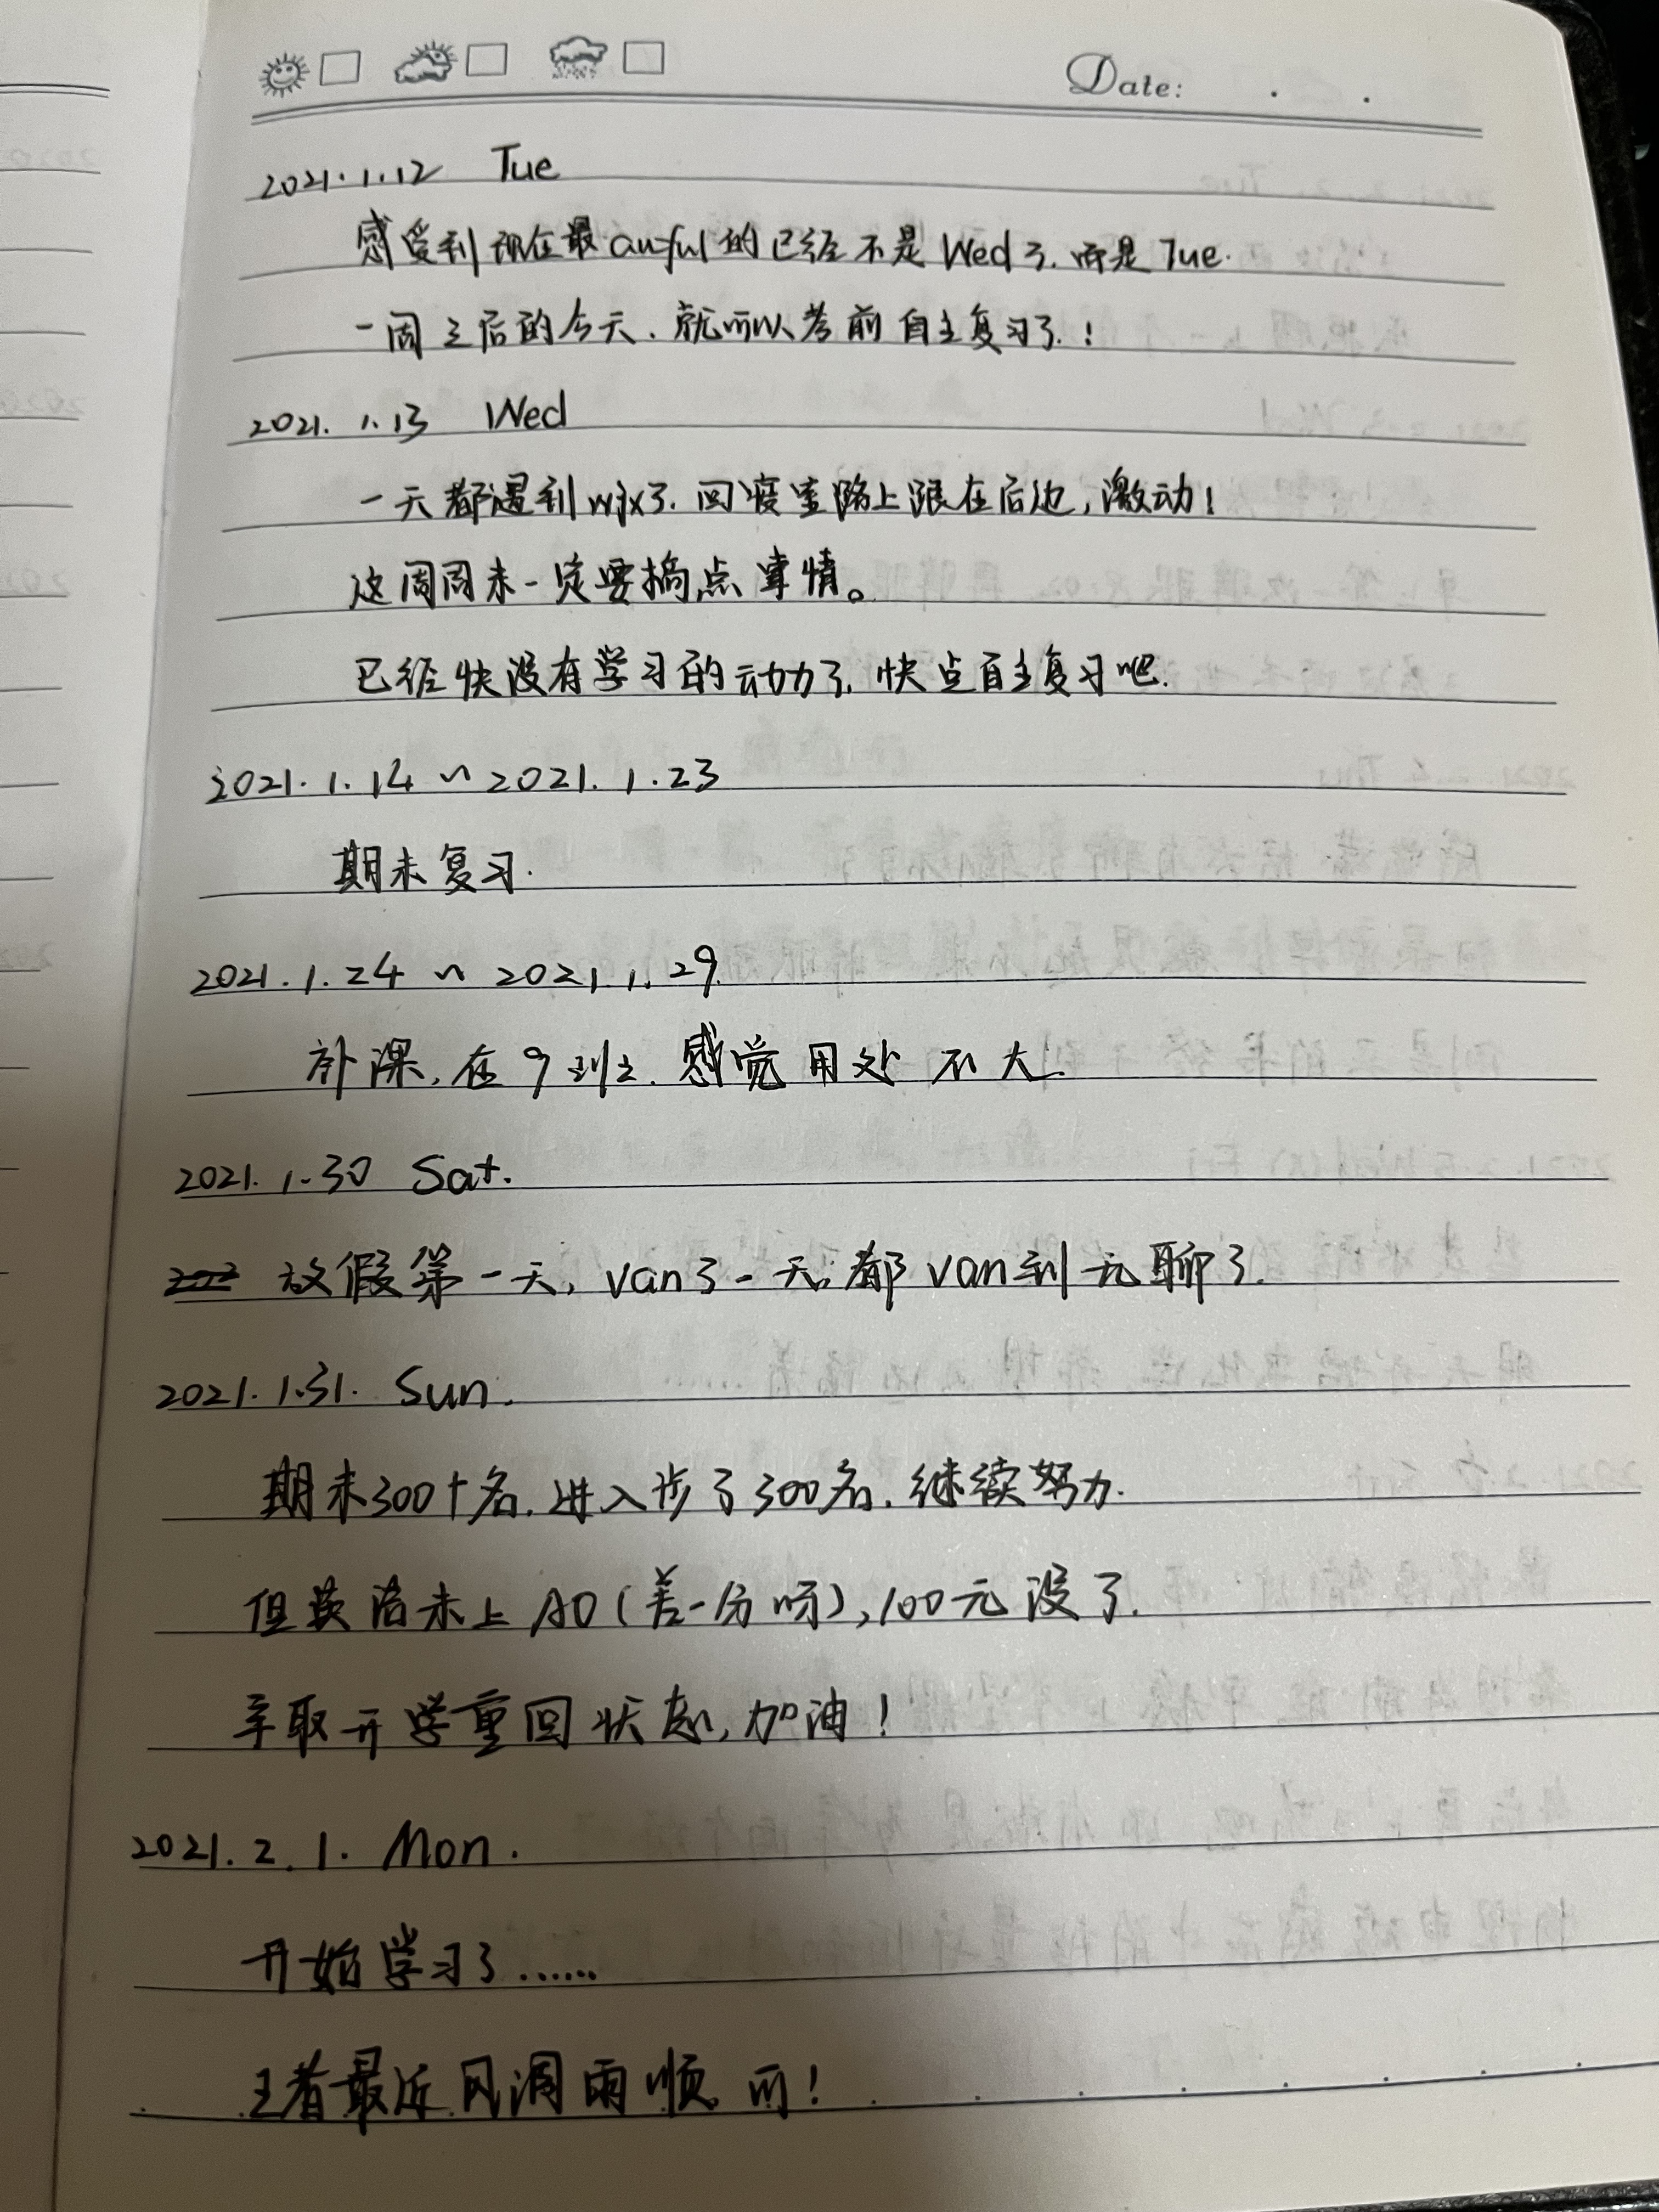 Date: . .
2021.1.12 Tue
感受到现在最awful的已经不是Wed了.而是Tue.
一周之后的今天.就可以考前自主复习了.!
2021.1.13 Wed
一天都遇到wjx了.回寝室路上跟在后边,激动!
这周周末一定要搞点事情。
已经快没有学习的动力了.快点自主复习吧.
2021.1.14 ~ 2021.1.23
期末复习.
2021.1.24 ~ 2021.1.29.
补课.在9班上.感觉用处不大.
2021.1.30 Sat.
放假第一天,van了一天.都van到无聊了.
2021.1.31. Sun.
期末300+名.进入步了300名.继续努力.
但英语未上AD(差一分呀),100元没了.
争取开学重回状态,加油!
2021.2.1. Mon.
开始学习了......
王者最近风调雨顺啊!